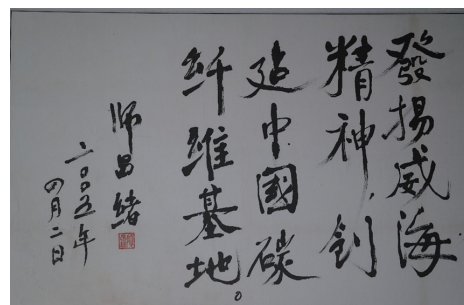 發揚威海
精神,創
建中國碳
纤維基地。
师昌绪
二〇〇五年
四月二日